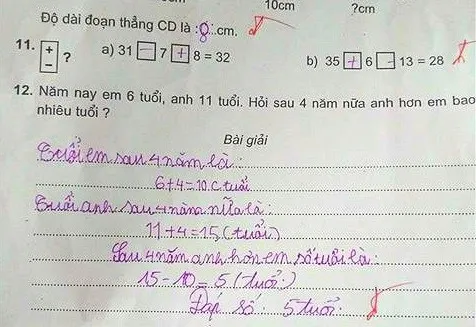 10cm ?cm
Độ dài đoạn thẳng CD là :8.cm.
11. + - ? a) 31 - 7 + 8 = 32 b) 35 + 6 - 13 = 28
12. Năm nay em 6 tuổi, anh 11 tuổi. Hỏi sau 4 năm nữa anh hơn em bao
nhiêu tuổi ?
Bài giải
Tuổi em sau 4 năm là :
6+4=10 (tuổi)
Tuổi anh sau 4 năm nữa là :
11+4=15 (tuổi)
Sau 4 năm anh hơn em số tuổi là:
15-10=5 (tuổi)
Đáp số: 5 tuổi.